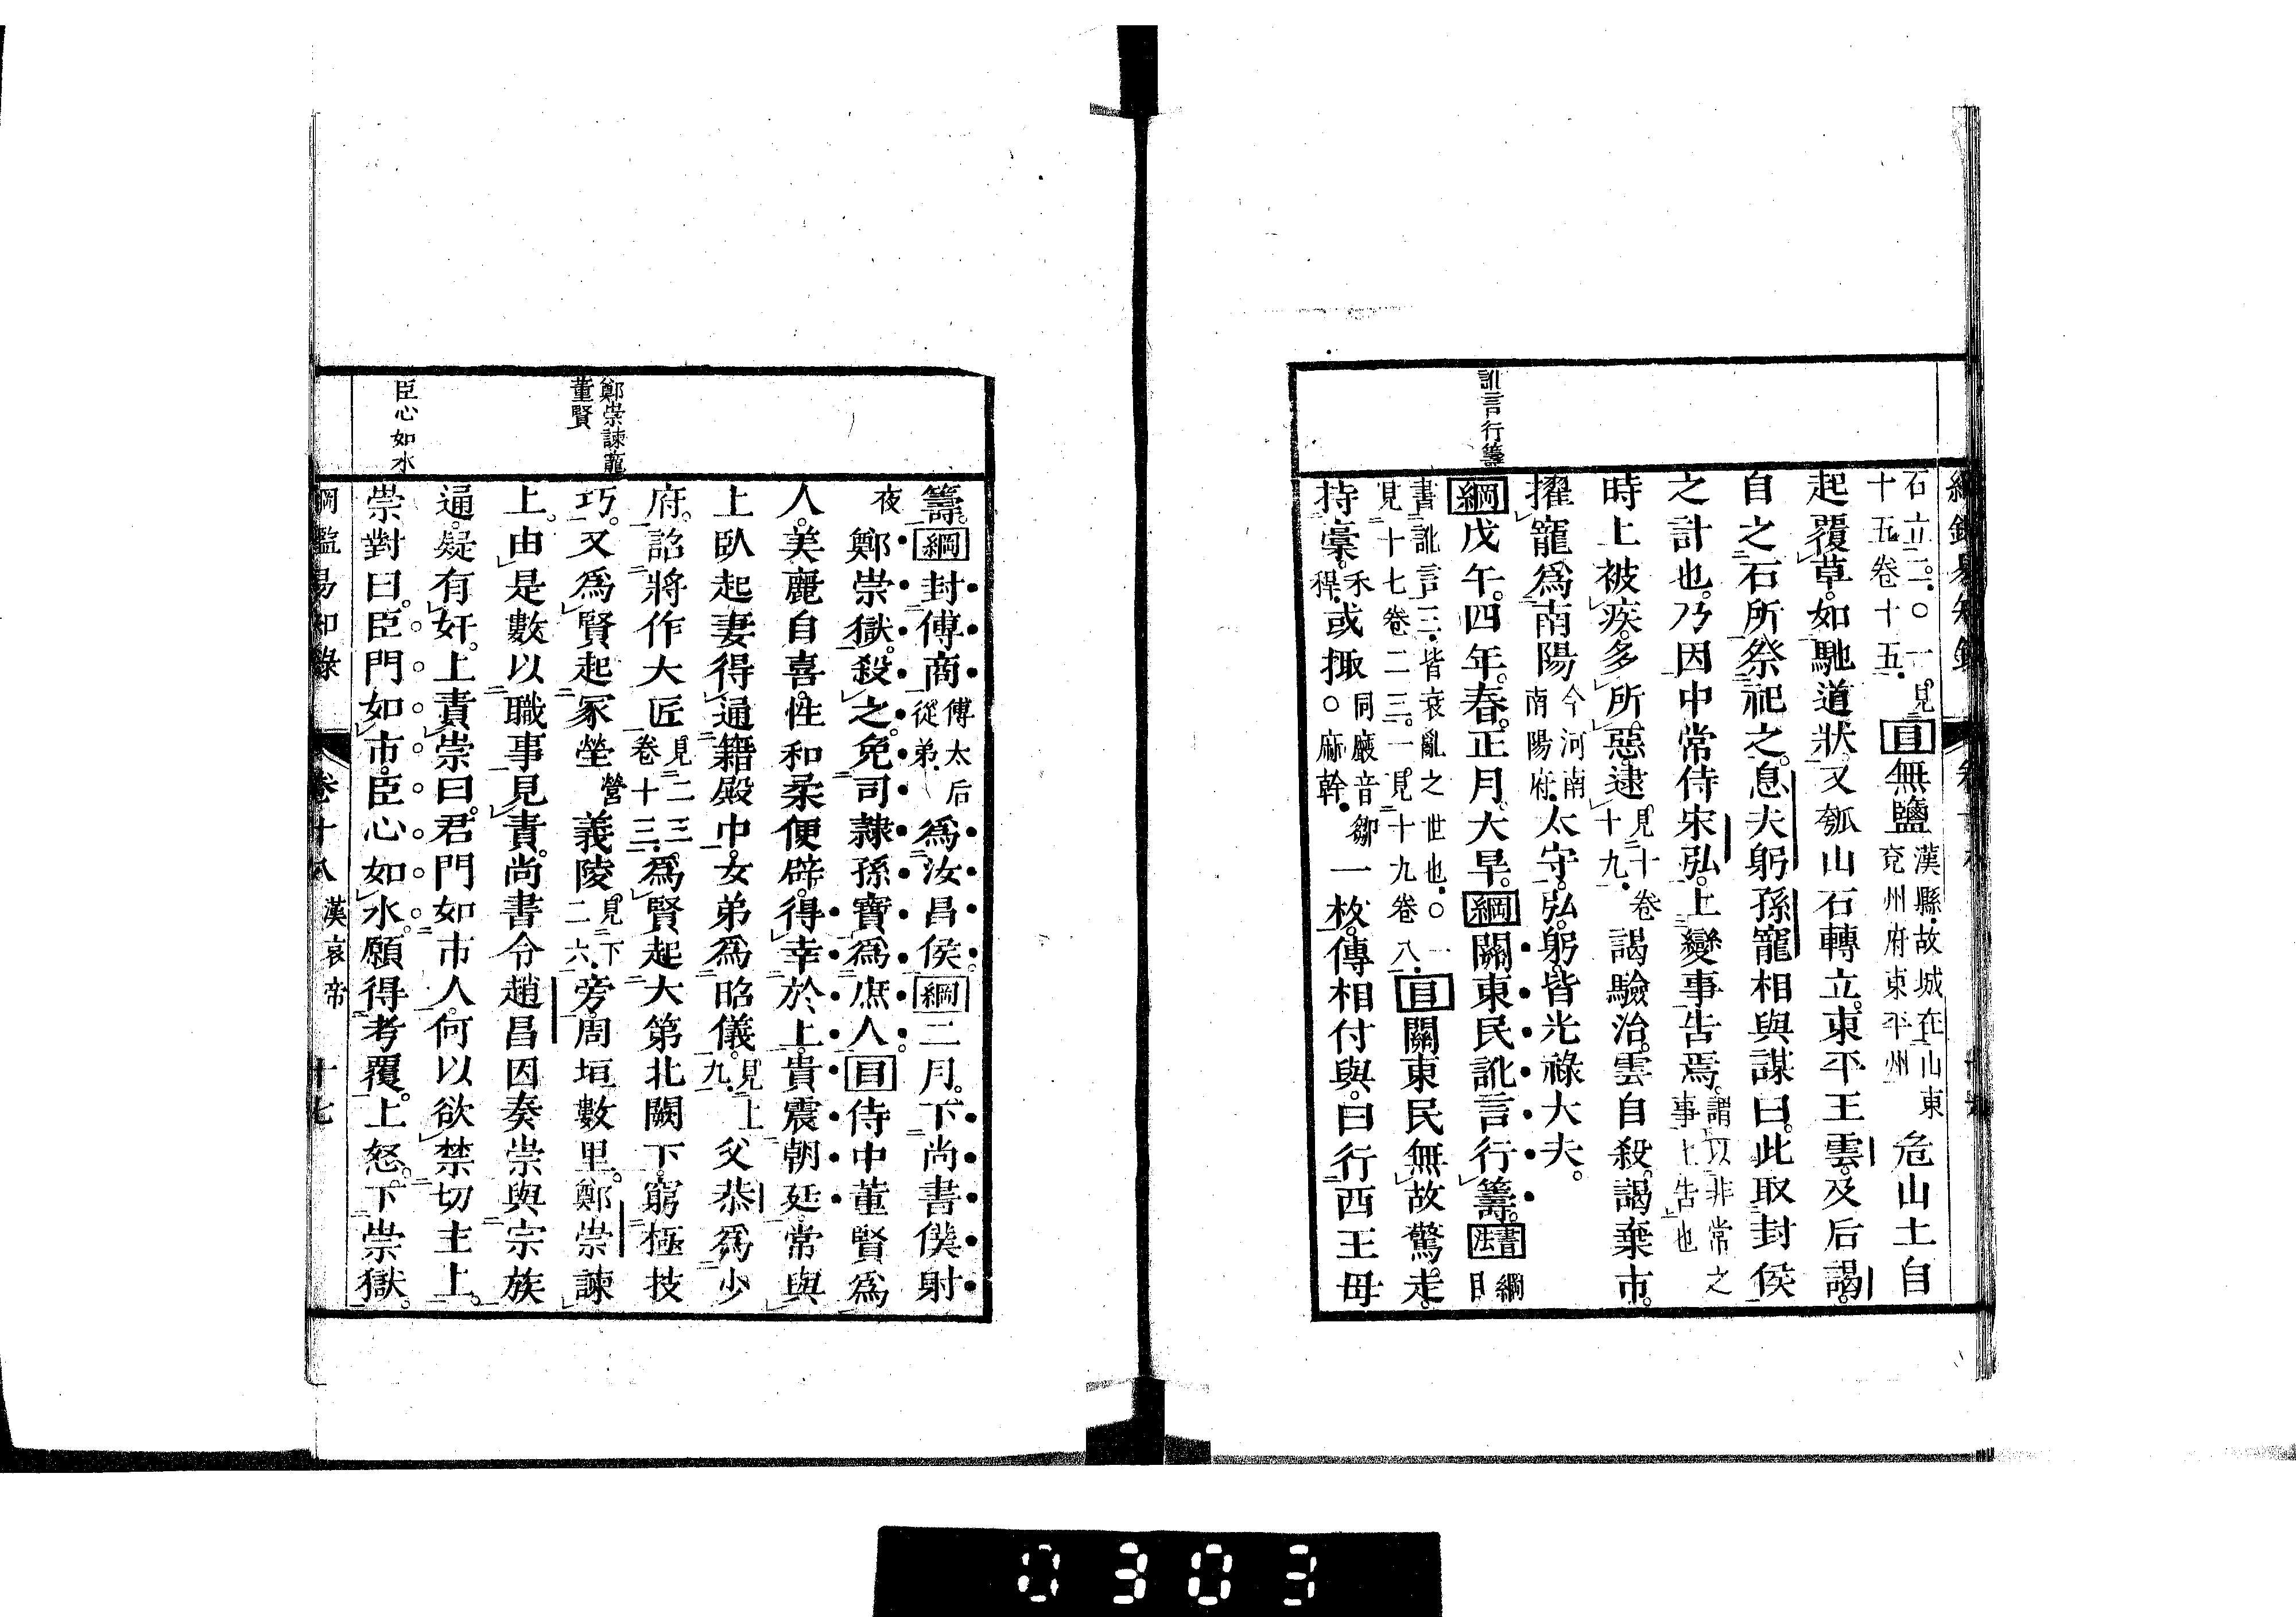 訛言行籌
石立二○一見
十五卷十五
目無鹽
漢縣故城在山東
兗州府東平州
危山土自
起覆草如馳道狀又瓠山石轉立東平王雲及后謁
自之石所祭祀之息夫躬孫寵相與謀曰此取封侯
之計也乃因中常侍宋弘上變事告焉
謂以非常之
事上告也
時上被疾多所惡逮
見十卷
十九
謁驗治雲自殺謁棄市
擢寵爲南陽
今河南
南陽府
太守弘躬皆光祿大夫
綱戊午四年春正月大旱綱關東民訛言行籌書法
綱目
書訛言三皆衰亂之世也○一
見十七卷二三一見十九卷八
目關東民無故驚走
持稾
禾稈
或掫
同廠音鄒
○麻幹
一枚傳相付與曰行西王母
鄭崇諫寵
董賢
臣心如水
籌綱封傅商
傅太后
從弟
爲汝昌侯綱二月下尚書僕射
夜
鄭崇獄殺之免司隸孫寶爲庶人目侍中董賢爲
人美麗自喜性和柔便辟得幸於上貴震朝廷常與
上臥起妻得通籍殿中女弟爲昭儀
見上
九
父恭爲少
府詔將作大匠
見二三
卷十三
爲賢起大第北闕下窮極技
巧又爲賢起冢塋
營
義陵
見下
二六
旁周垣數里鄭崇諫
上由是數以職事見責尚書令趙昌因奏崇與宗族
通疑有奸上責崇曰君門如市人何以欲禁切主上
崇對曰臣門如市臣心如水願得考覆上怒下崇獄
綱鑑易知錄
卷十八
漢哀帝
十七